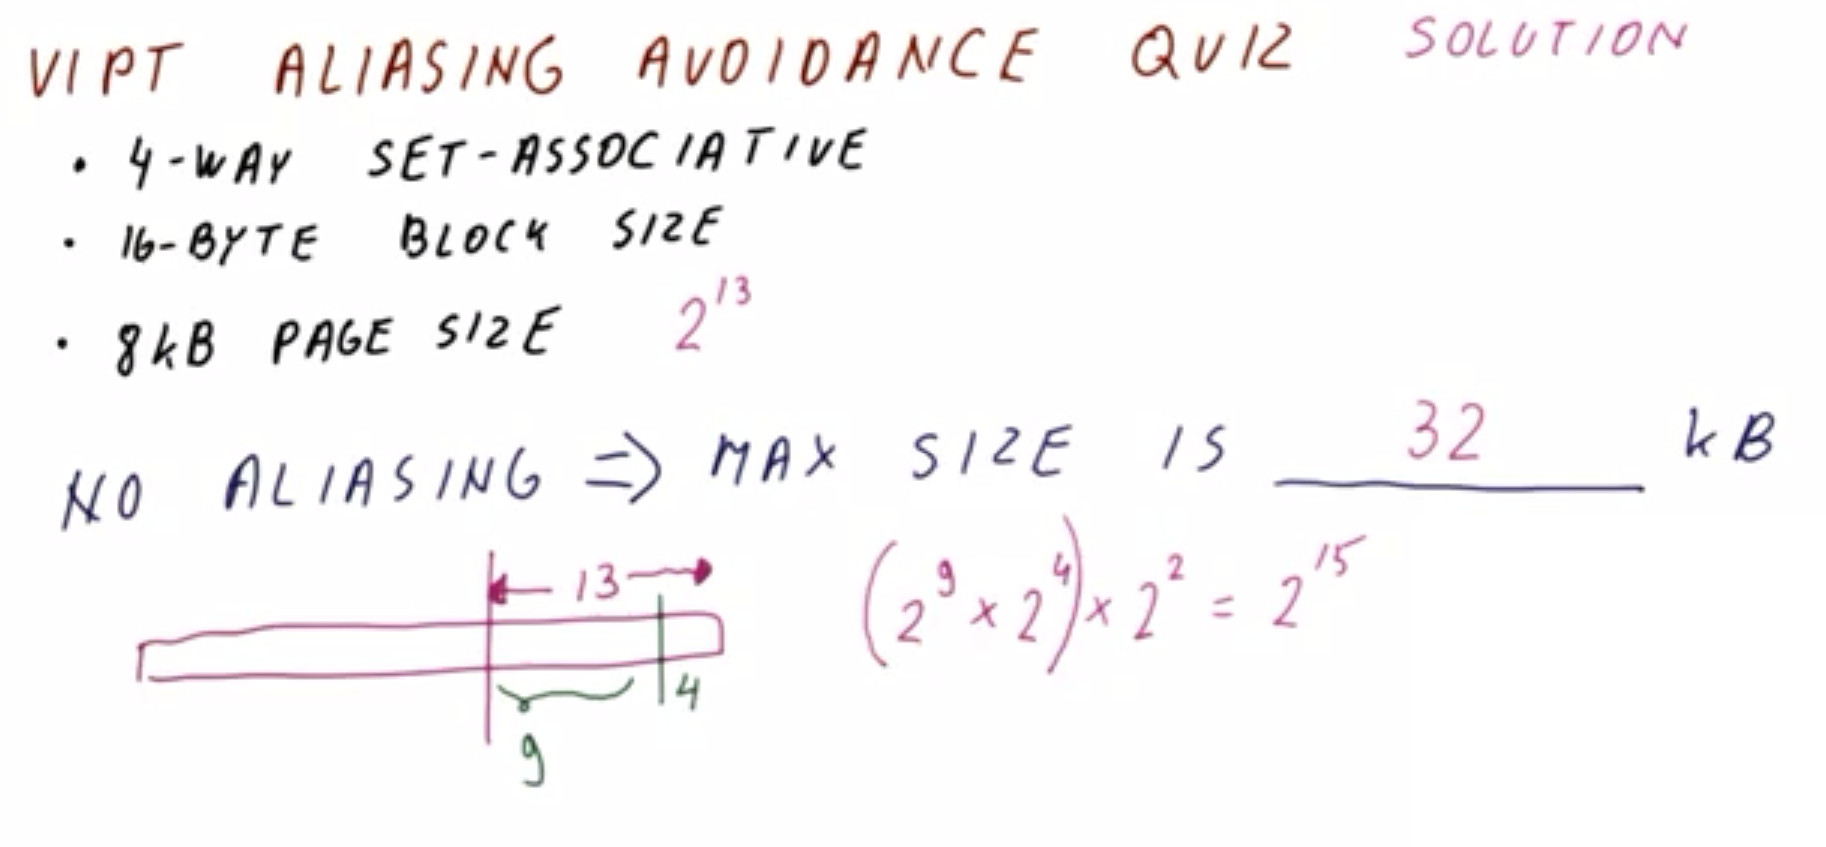 VIPT ALIASING AVOIDANCE QUIZ SOLUTION
• 4-WAY SET-ASSOCIATIVE
• 16-BYTE BLOCK SIZE
• 8kB PAGE SIZE 2^13
NO ALIASING => MAX SIZE IS 32 kB
13
(2^9 x 2^4) x 2^2 = 2^15
4
9